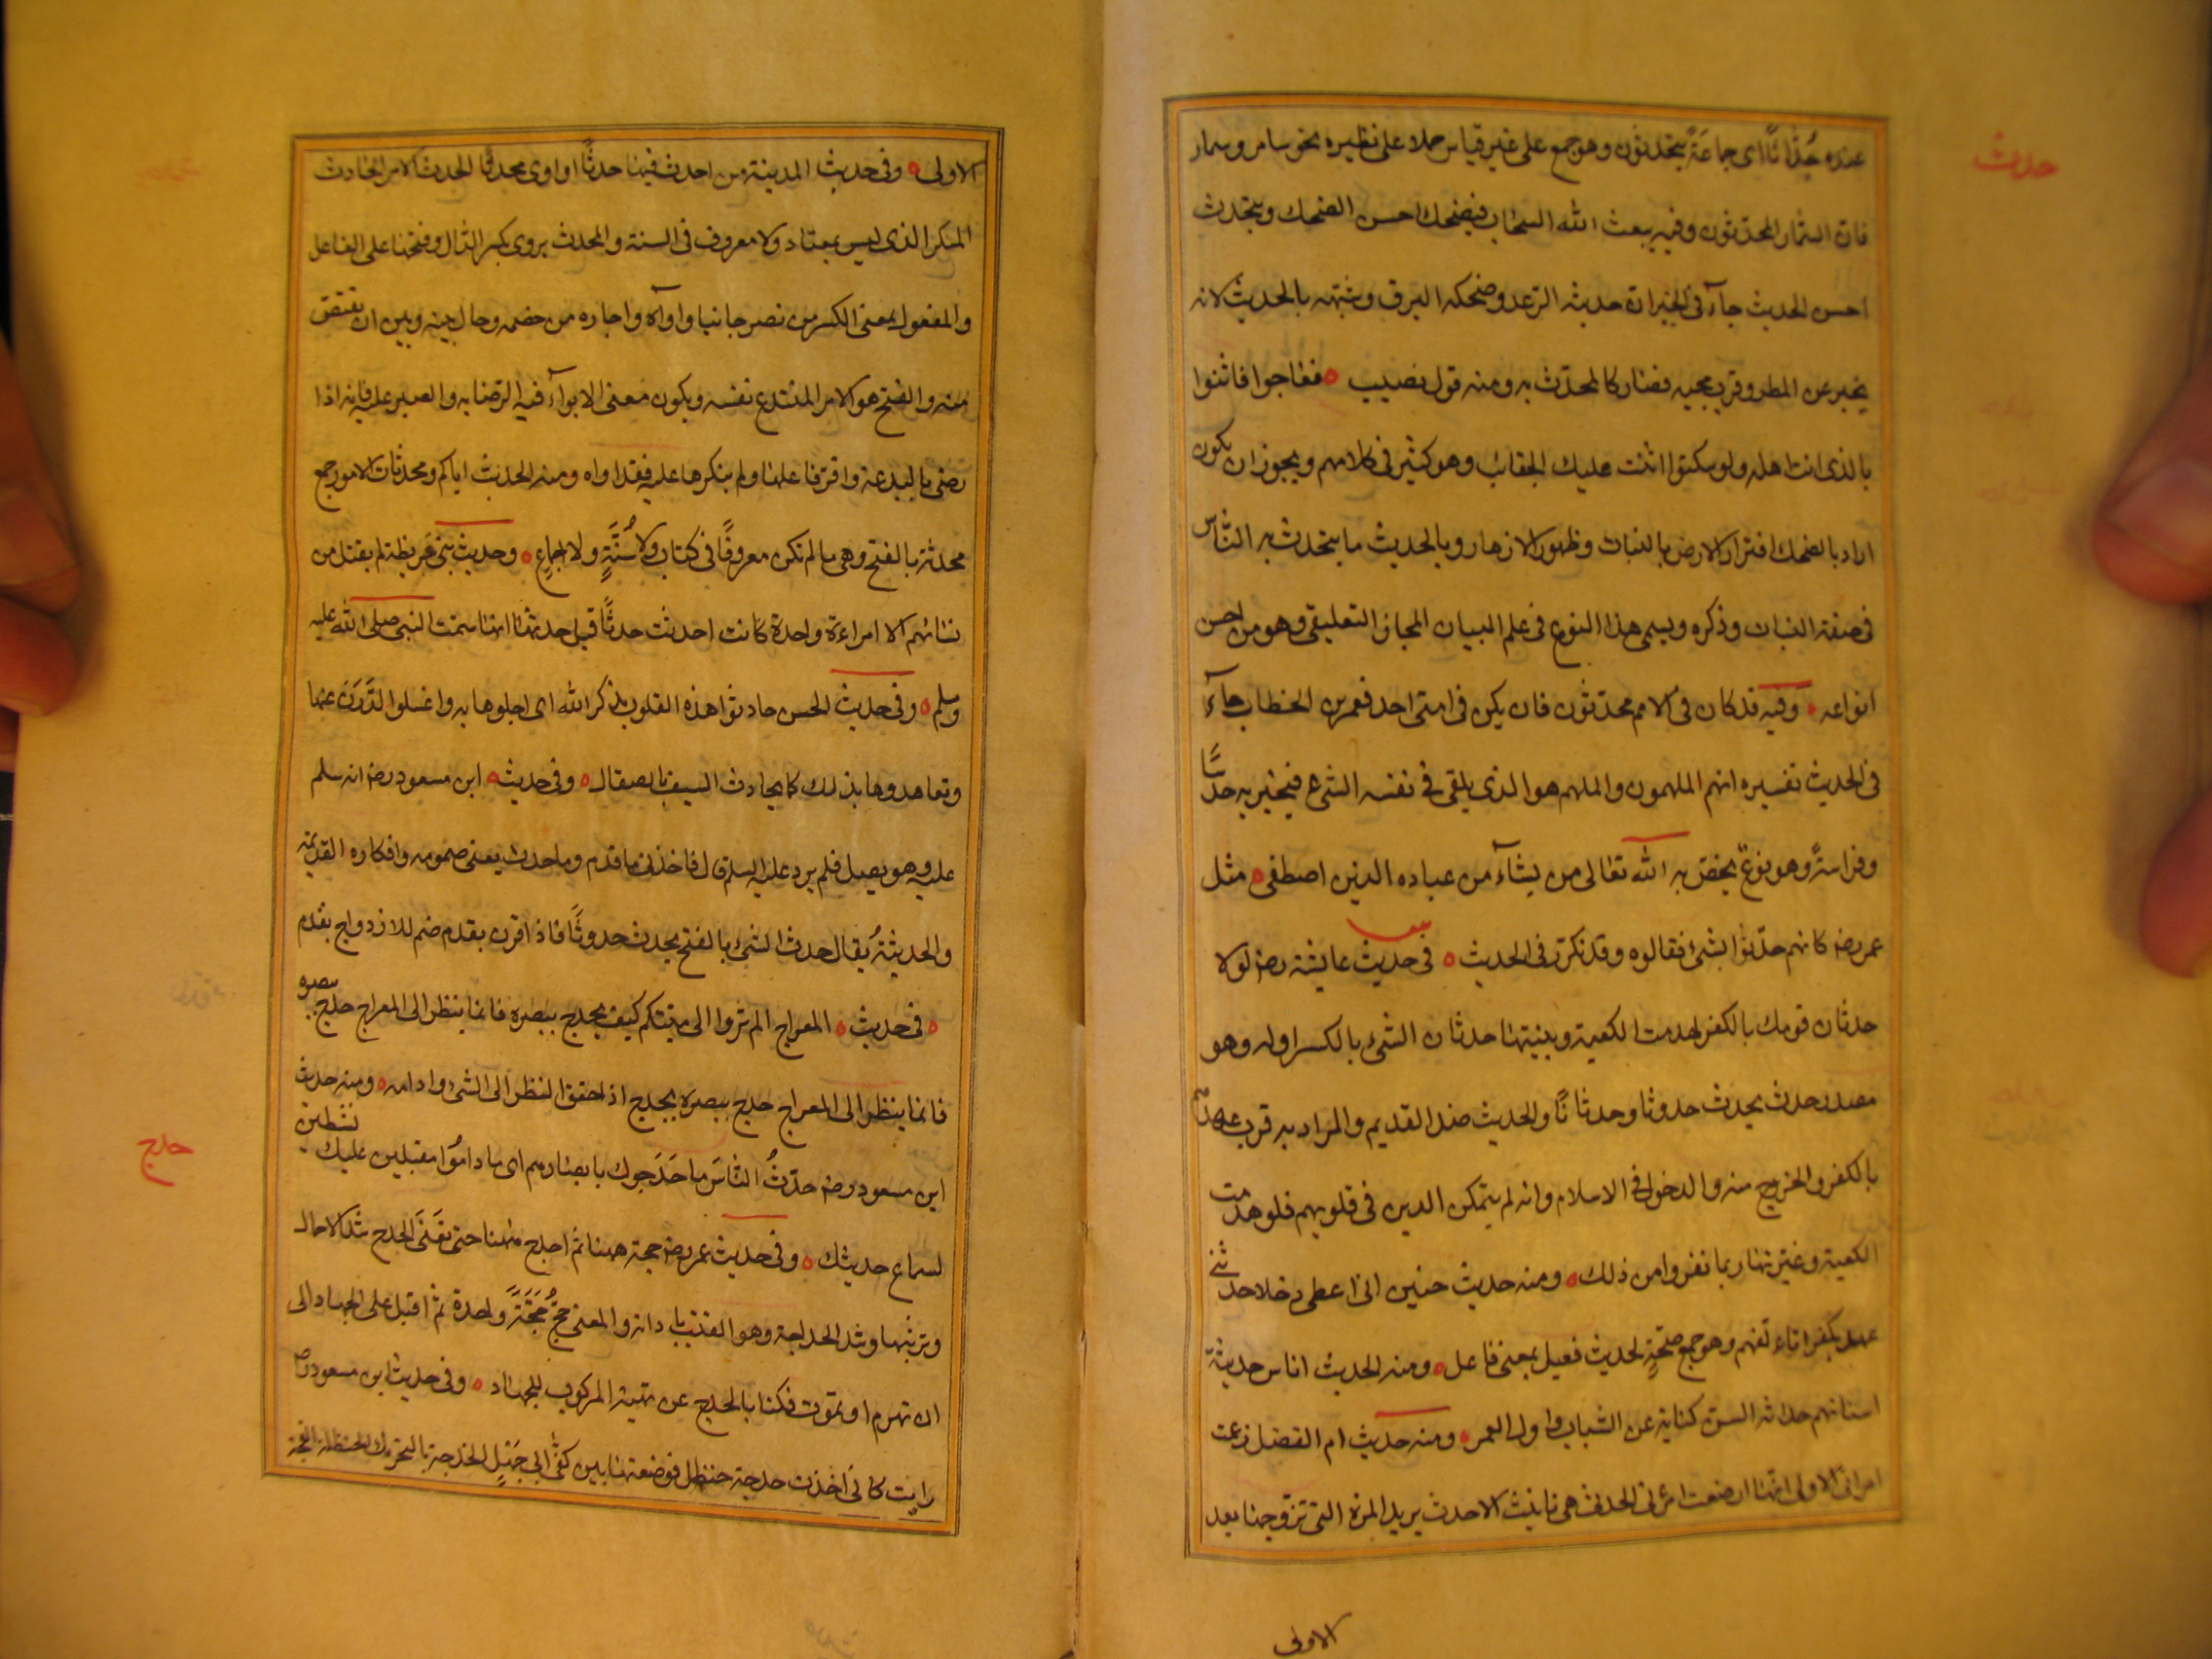 حدث
عنده حُدّاثًا اى جماعَةً يتحدثون وهو جمع على غير قياس حملا على نظيره نحو سامر وسمار
فان السمار المحدّثون وفيه يبعث الله السحاب فيضحك احسن الضحك ويتحدث
احسن الحديث جآء فى الخبر ان حديثه الرعد وضحكه البرق وشبهه بالحديث لانه
يخبر عن المطر وقرب مجيه فصار كالمحدّث به ومنه قول نصيب فعاجوا فاثنوا
بالذى انت اهله ولو سكتوا اثنت عليك الحقائب وهو كثير فى كلامهم ويجوز ان يكون
اراد بالضحك افترار الارض بالنبات وظهور الازهار وبالحديث ما يتحدث به الناس
فى صفة النبات وذكره ويسمى هذا النوع فى علم البيان المجاز التعليقى وهو من احسن
انواعه وفيه قد كان فى الامم محدّثون فان يكن فى امتى احد فعمر بن الخطاب جآء
فى الحديث تفسيره انهم الملهمون والملهم هو الذى يلقى فى نفسه الشئ فيخبر به حدسًا
وفراسةً وهو نوعٌ يخص به الله تعالى من يشآء من عباده الذين اصطفى مثل
عمر رضه كانهم حدّثوا بشئ فقالوه وقد تكرّر فى الحديث فى حديث عايشة رضه لولا
حدثان قومك بالكفر لهدمت الكعبة وبنيتها حدثان الشئ بالكسر اوله وهو
مصدر حدث يحدث حدوثا وحدثانًا والحديث ضد القديم والمراد به قرب عهدهم
بالكفر والخروج منه والدخول فى الاسلام وانه لم يتمكن الدين فى قلوبهم فلو هدمت
الكعبة وغيرتها ربما نفروا من ذلك ومنه حديث حنين انى اعطى رجالا حديثى
عهد بكفر اتالفهم وهو جمع صحةٍ لحديث فعيل بمعنى فاعل ومنه الحديث اناس حديثة
اسنانهم حداثه السن كناية عن الشباب واول العمر ومنه حديث ام الفضل زعمت
امراتى الاولى انها ارضعت امراتى الحدثى هى تانيث الاحدث يريد المرة التى تزوجها بعد
الاولى
الاولى وفى حديث المدينة من احدث فيها حدثًا او اوى محدثًا الحدث الامر الحادث
المنكر الذى ليس بمعتاد ولا معروف فى السنة والمحدث يروى بكسر الدال وفتحها على الفاعل
والمفعول بمعنى الكسر من نصر جانيا واوآه واجاره من خصمه وحال بينه وبين ان يقتص
منه والفتح هو الامر المبتدع نفسه ويكون معنى الايوآء فيه الرضا به والصبر عليه فانه اذا
رضى بالبدعة واقر فاعلها ولم ينكرها عليه فقد اواه ومنه الحديث اياكم ومحدثات الامور جمع
محدثة بالفتح وهى ما لم تكن معروفًا فى كتاب ولا سُنَّةٍ ولا اجماع وحديث بنى قريظة لم يقتل من
نسائهم الا امراءة واحدة كانت احدثت حدثًا قيل حدثها انها سمت النبى صلى الله عليه
وسلم وفى حديث الحسن حادثوا هذه القلوب بذكر الله اى اجلوها به واغسلوا الدَّرَنَ عنها
وتعاهدوها بذلك كما يحادث السيف بالصقال وفى حديث ابن مسعود رضه انه سلم
عليه وهو يصل فلم يرد عليه السلم قال فاخذنى ما قدم وما حدث يعنى همومه وافكاره القديمة
والحديثةُ يقال حدث الشئ بالفتح يحدث حدوثًا فاذا قرن بقدم ضم للازدواج بقدم
فى حديث المعراج الم تروا الى ميتكم كيف يحدج ببصره فانما ينظر الى المعراج حدج ببصره
حدج
فانما ينظر الى المعراج حدج ببصره يحدج اذا حقق النظر الى الشئ وادامه ومنه حديث
ابن مسعود رضه حدّثُ الناسَ ما حَدَجوك بابصارهم اى ما داموُا مقبلين عليك نشطين
لسماع حديثك وفى حديث عمر رضه حجة ههنا ثم احدج ههنا حتى تفنَى الحدج شد الاحمال
وتربتها وشد الحداجة وهو القتب باداته والمعنى حجَّ حَجَّةً واحدة ثم اقبل على الجهاد الى
ان تهرم او تموت فكنا بالحدج عن تهيئة المركوب للجهاد وفى حديث ابن مسعود رضه
رايت كانى اخذت حدجة حنظل فوضعتها بين كتفى ابى جَهْلٍ الحدجة بالتحريك الحنظلة الفجة